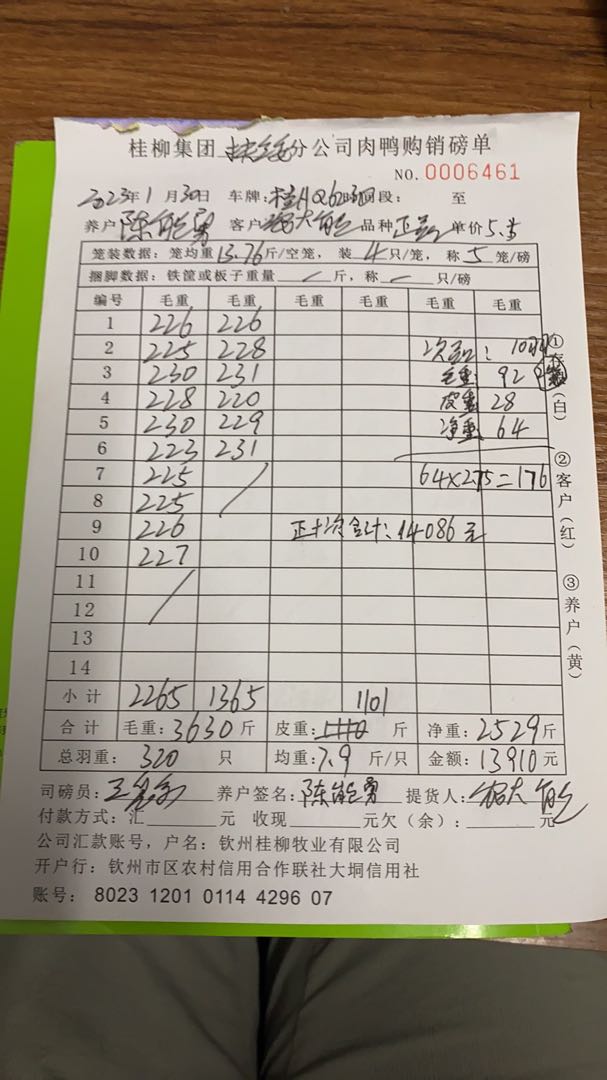 桂柳集团 分公司肉鸭购销磅单
NO. 0006461
2023年1月30日 车牌: 时间段: 至
养户 陈能勇 客户 品种 正品 单价5.5
笼装数据: 笼均重13.76斤/空笼, 装4只/笼, 称5笼/磅
捆脚数据: 铁筐或板子重量 / 斤, 称 / 只/磅
编号 毛重 毛重 毛重 毛重 毛重 毛重
1 226 226
2 225 228 次品:
3 230 231 毛重 92
4 228 220 皮重 28
5 230 229 净重 64
6 223 231
7 225 / 64×2.75=176
8 225
9 226 正+次合计: 14086元
10 227
11 /
12
13
14
小计 2265 1365 1101
合计 毛重:3630斤 皮重: 斤 净重:2529斤
总羽重: 320 只 均重:7.9斤/只 金额:13910元
司磅员: 养户签名: 陈能勇 提货人:
付款方式: 汇 元 收现 元欠(余): 元
公司汇款账号, 户名: 钦州桂柳牧业有限公司
开户行: 钦州市区农村信用合作联社大垌信用社
账号: 8023 1201 0114 4296 07
①存根(白)
②客户(红)
③养户(黄)